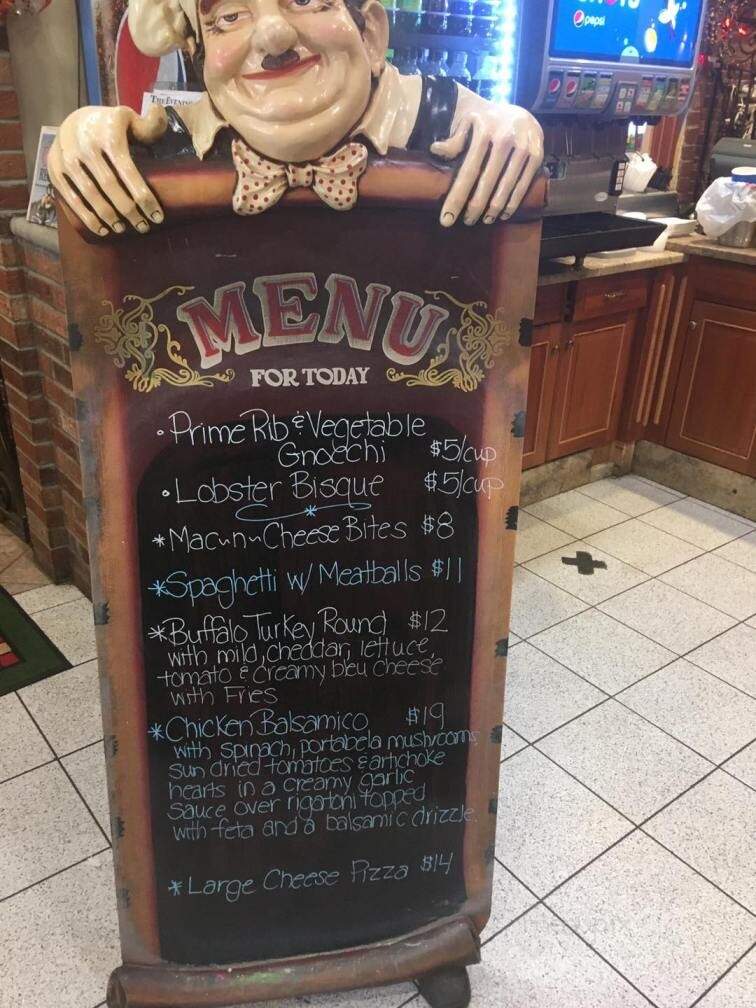 pepsi
THE EVENING
MENU
FOR TODAY
• Prime Rib & Vegetable
Gnocchi $5/cup
• Lobster Bisque $5/cup
* Mac-n-Cheese Bites $8
* Spaghetti w/ Meatballs $11
* Buffalo Turkey Round $12
with mild, cheddar, lettuce,
tomato & creamy bleu cheese
with Fries
* Chicken Balsamico $19
with spinach, portabela mushrooms,
sun dried tomatoes & artichoke
hearts in a creamy garlic
sauce over rigatoni topped
with feta and a balsamic drizzle.
* Large Cheese Pizza $14